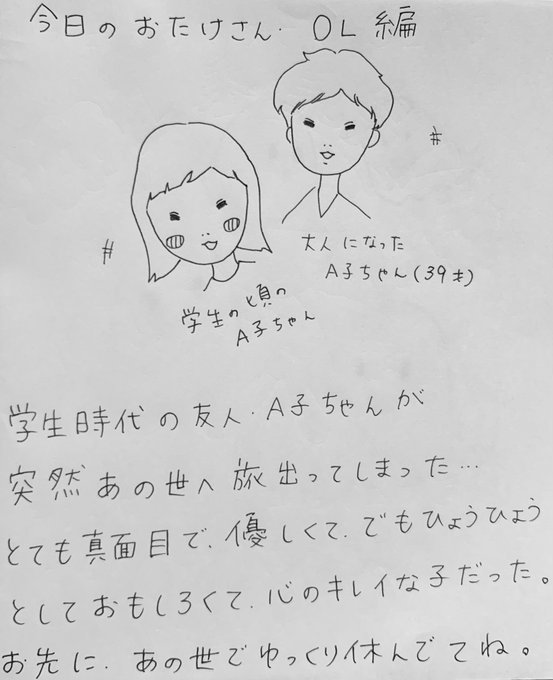 今日のおたけさん. OL編
#
#
大人になった
A子ちゃん(39才)
学生の頃の
A子ちゃん
学生時代の友人.A子ちゃんが
突然あの世へ旅出ってしまった…
とても真面目で.優しくて.でもひょうひょう
としておもしろくて.心のキレイな子だった。
お先に.あの世でゆっくり休んでてね。